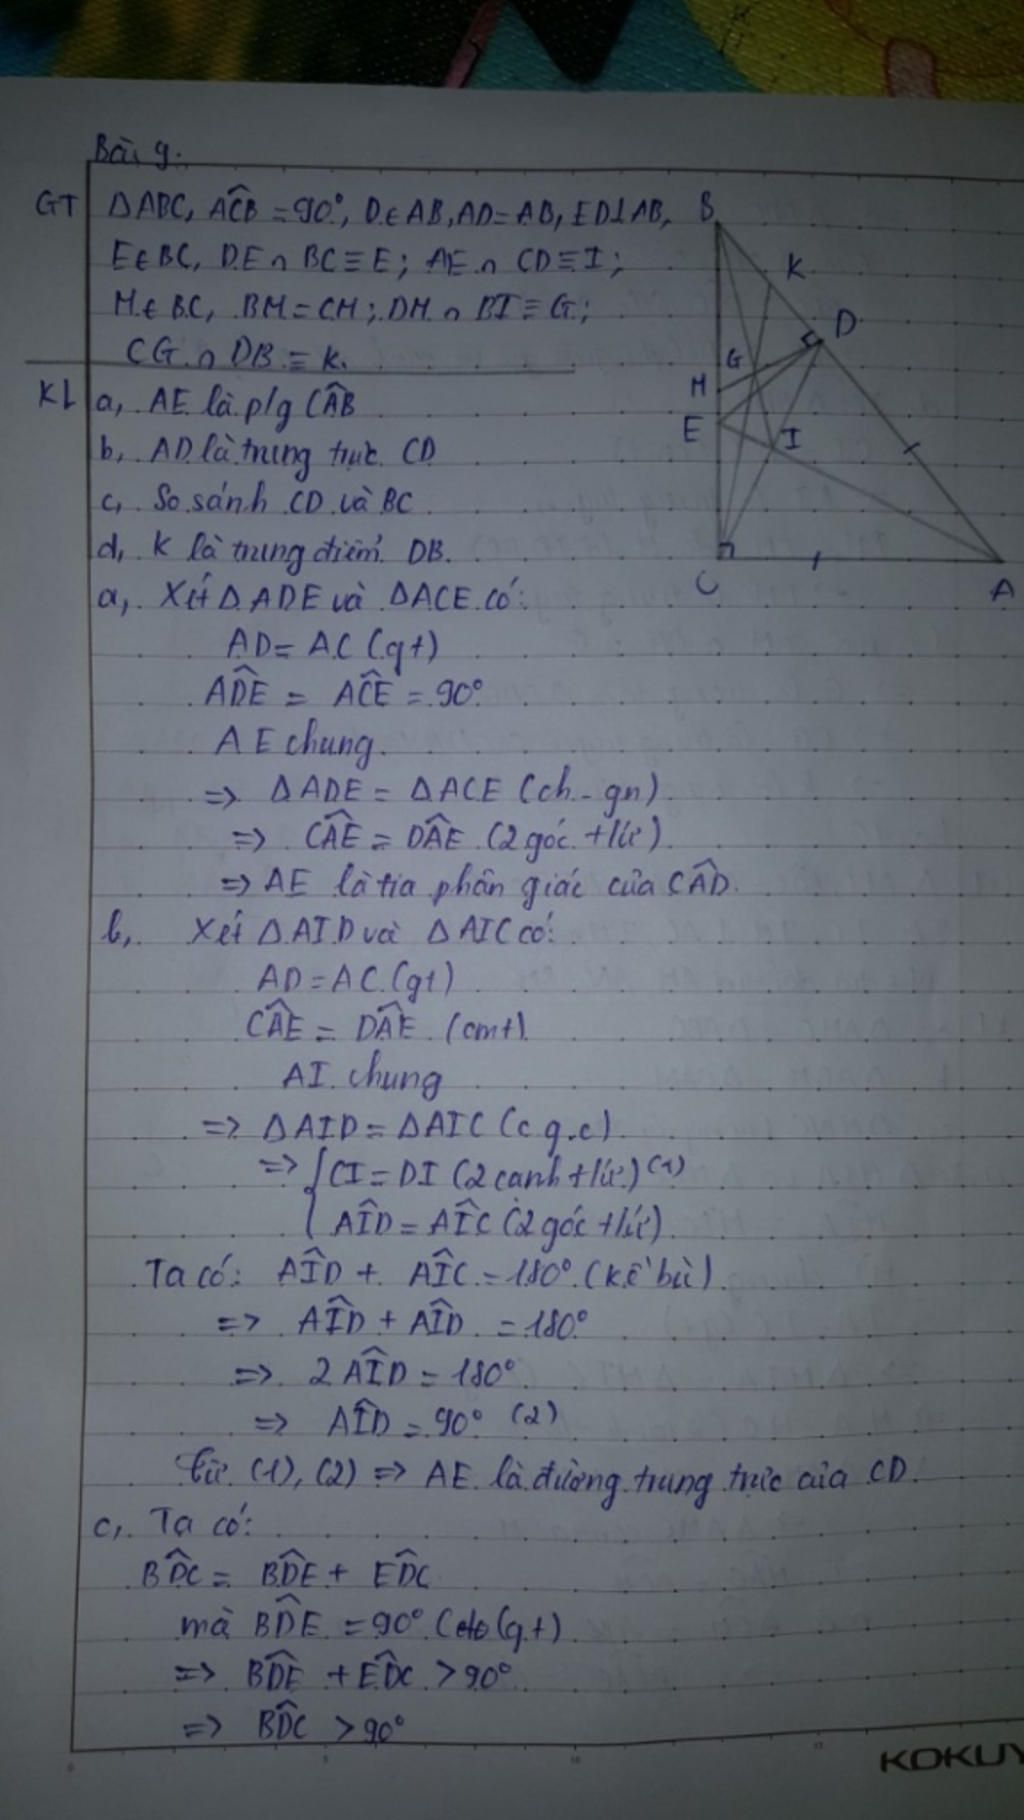 Bài 9.
GT ΔABC, ACB̂ = 90°, D∈AB, AD=AB, ED⊥AB,
E∈BC, DE∩BC≡E; AE∩CD≡I;
M∈BC, BM=CM; DM∩BI≡G;
CG∩DB≡K.
KL a, AE là p/g CÂB
b, AD là trung trực CD
c, So sánh CD và BC
d, K là trung điểm DB.
B
K
D
G
M
E
I
C
A
a, Xét ΔADE và ΔACE có:
AD = AC (gt)
AD̂E = AĈE = 90°
AE chung.
=> ΔADE = ΔACE (ch-gn)
=> CÂE = DÂE (2 góc tứ)
=> AE là tia phân giác của CÂD.
b, Xét ΔAID và ΔAIC có:
AD = AC (gt)
CÂE = DÂE (cmt)
AI chung
=> ΔAID = ΔAIC (c.g.c)
=> { CI = DI (2 cạnh tứ) (1)
AÎD = AÎC (2 góc tứ)
Ta có: AÎD + AÎC = 180° (kề bù)
=> AÎD + AÎD = 180°
=> 2 AÎD = 180°
=> AÎD = 90° (2)
Từ (1), (2) => AE là đường trung trực của CD.
c, Ta có:
BD̂C = BD̂E + ED̂C
mà BD̂E = 90° (gt)
=> BD̂E + ED̂C > 90°
=> BD̂C > 90°
0 5 10 15
KOKUY